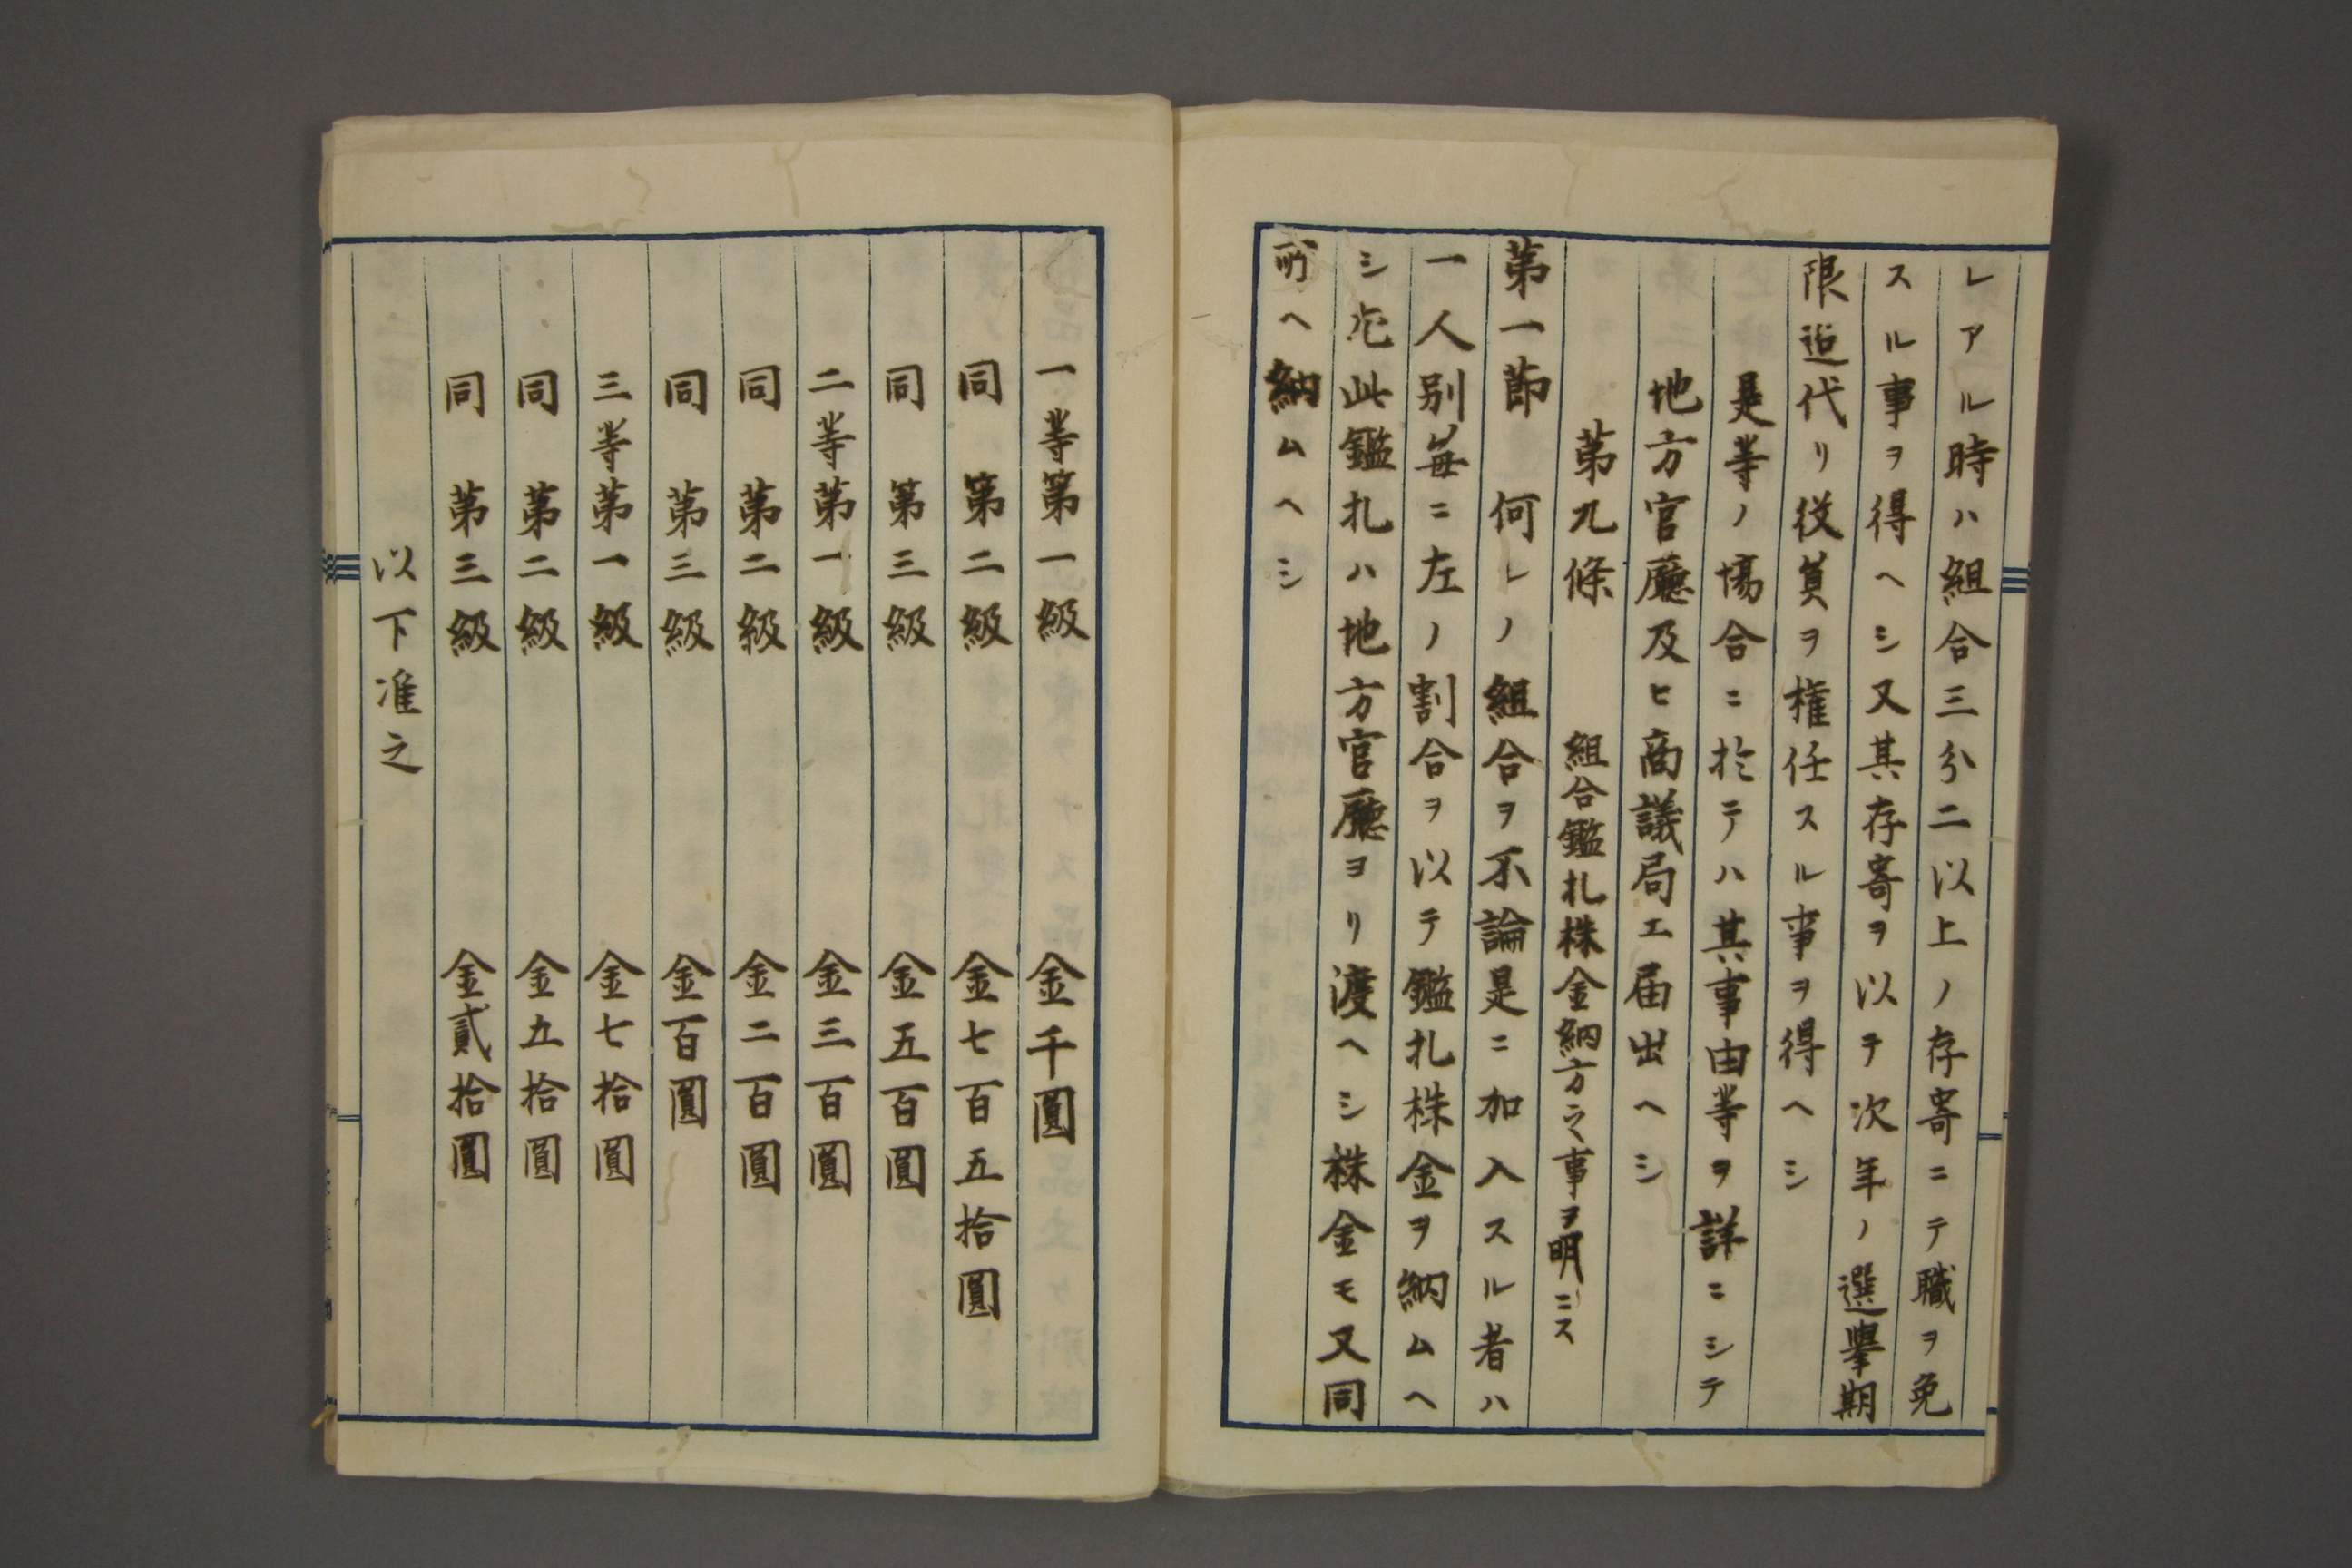 レアル時ハ組合三分二以上ノ存寄ニテ職ヲ免
スル事ヲ得ヘシ又其存寄ヲ以テ次年ノ選擧期
限迄代リ役員ヲ権任スル事ヲ得ヘシ
是等ノ塲合ニ於テハ其事由等ヲ詳ニシテ
地方官廳及ヒ商議局エ届出ヘシ
第九條 組合鑑札株金納方之事ヲ明ニス
第一節 何レノ組合ヲ不論是ニ加入スル者ハ
一人別毎ニ左ノ割合ヲ以テ鑑札株金ヲ納ムヘ
シ尤此鑑札ハ地方官廳ヨリ渡ヘシ株金モ又同
所ヘ納ムヘシ
一等第一級 金千圓
同 第二級 金七百五拾圓
同 第三級 金五百圓
二等第一級 金三百圓
同 第二級 金二百圓
同 第三級 金百圓
三等第一級 金七拾圓
同 第二級 金五拾圓
同 第三級 金貳拾圓
以下准之